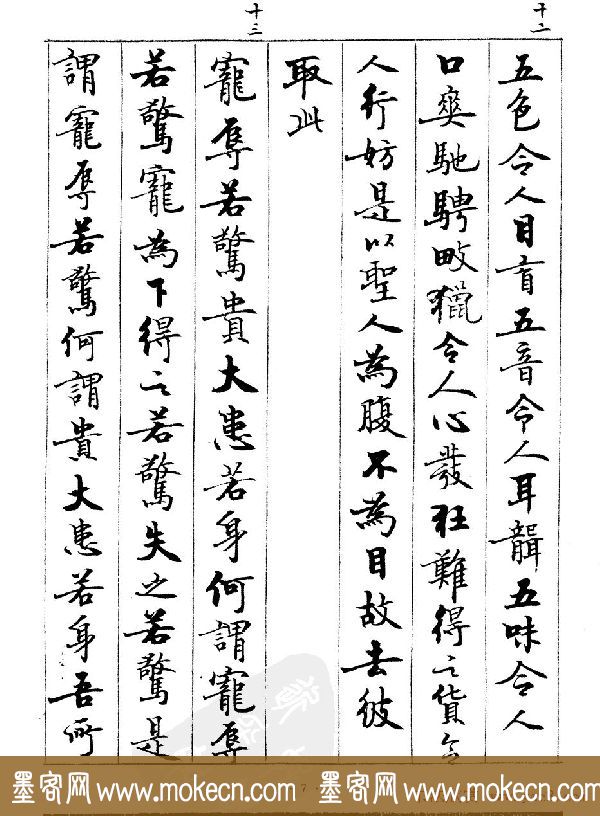 十二
五色令人目盲五音令人耳聾五味令人
口爽馳騁畋獵令人心發狂難得之貨令
人行妨是以聖人為腹不為目故去彼
取此
十三
寵辱若驚貴大患若身何謂寵辱
若驚寵為下得之若驚失之若驚是
謂寵辱若驚何謂貴大患若身吾所
墨客网 www.mokecn.com 墨客网 www.mokecn.com